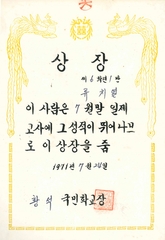 상장
제6학년1반
유치원
이 사람은 7월말 일제
고사에 그 성적이 뛰어나므
로 이 상장을 줌
1971년 7월 24일
황석 국민학교장